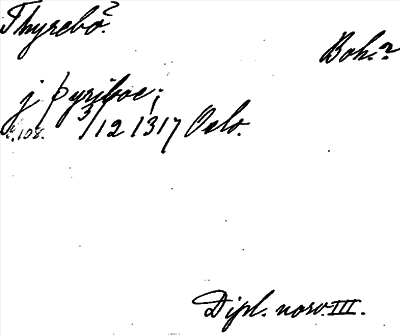 Thyrebo?
Boh.?
j þyriboe;
s. 108. 3/12 1317 Oslo.
Dipl. norv. III.